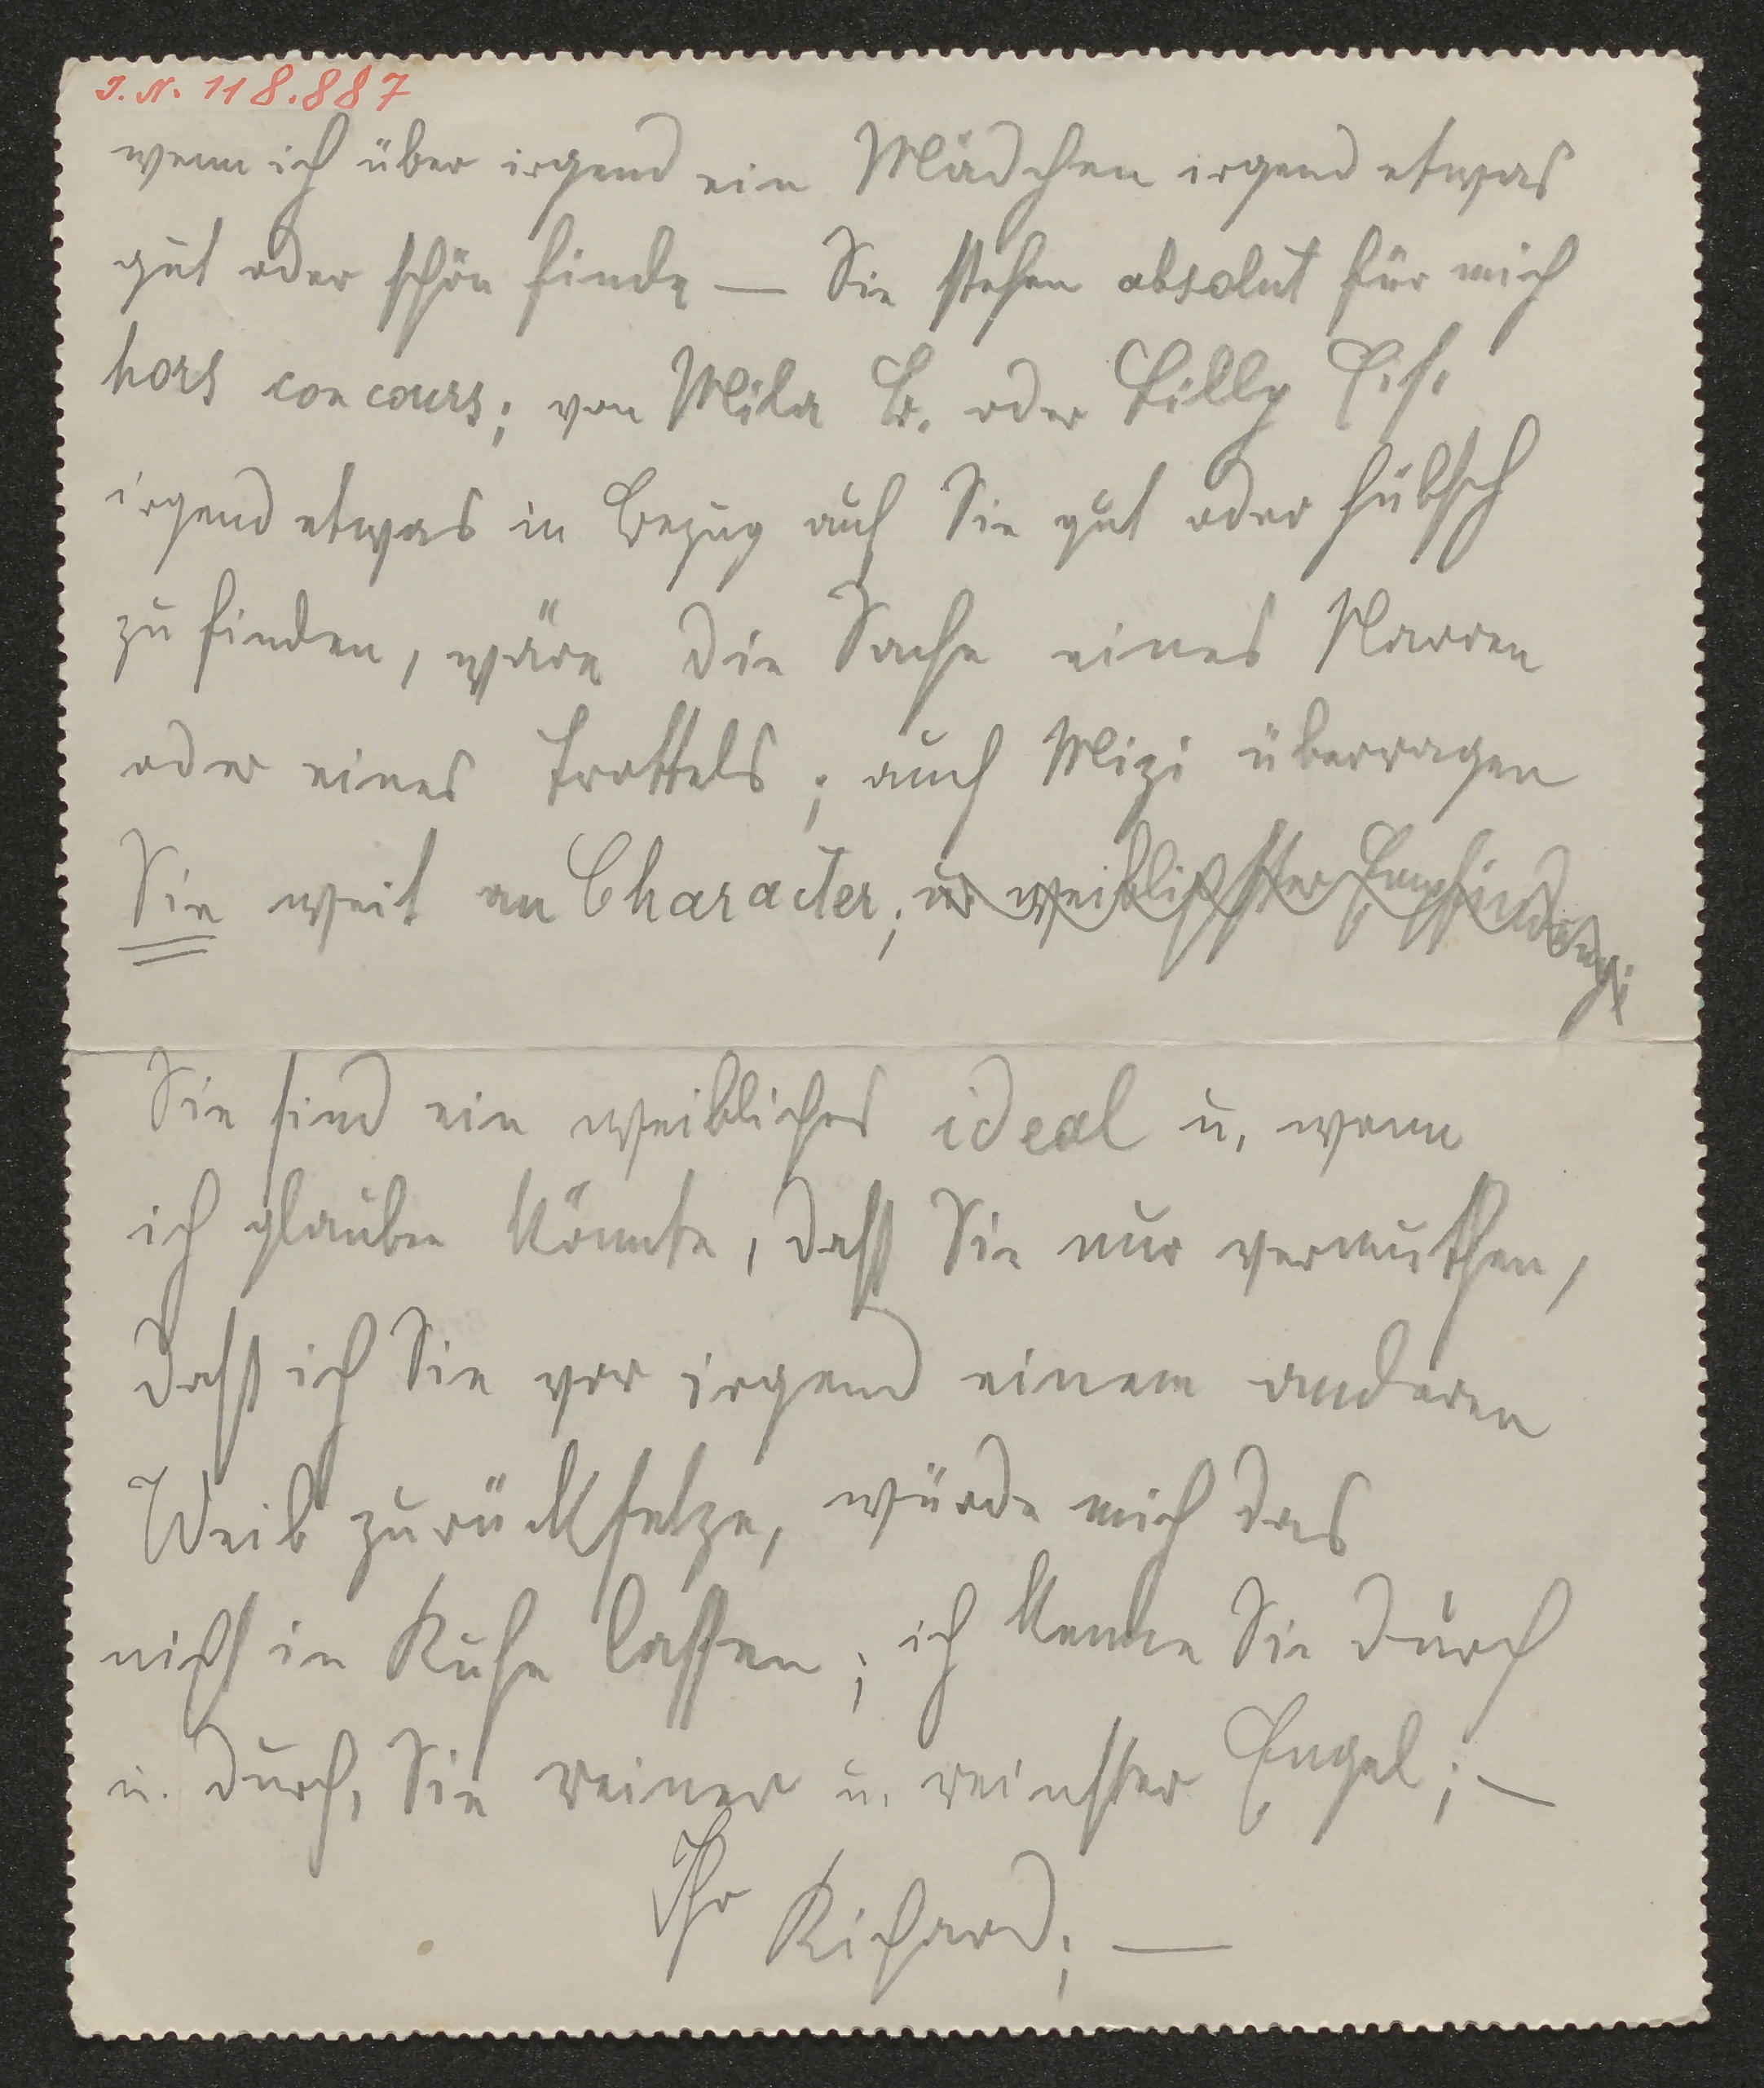 I. N. 118.887
wenn ich über irgend ein Mädchen irgend etwas
gut oder schön finde — Sie stehen absolut für mich
hors concours; von Mila B. oder Lilly
irgend etwas in Bezug auf Sie gut oder hübsch
zu finden, wäre die Sache eines Narren
oder eines Trottels; auch Mizi überragen
Sie weit an Character; an weiblichster Empfindung;
Sie sind ein weibliches ideal u. wenn
ich glauben könnte, dass Sie nur vermuthen,
dass ich Sie vor irgend einem anderen
Weib zurücksetze, würde mich das
nicht in Ruhe lassen; ich kenne Sie durch
u. durch, Sie reiner u. reinster Engel; —
Ihr Richard; —